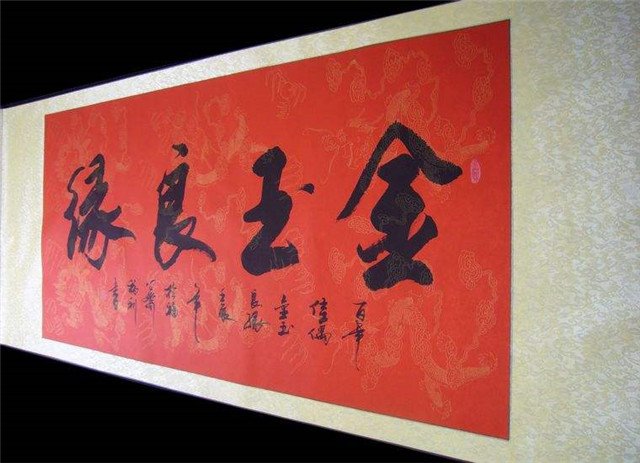 金玉良缘
百年
佳偶
金玉
良缘
年
书